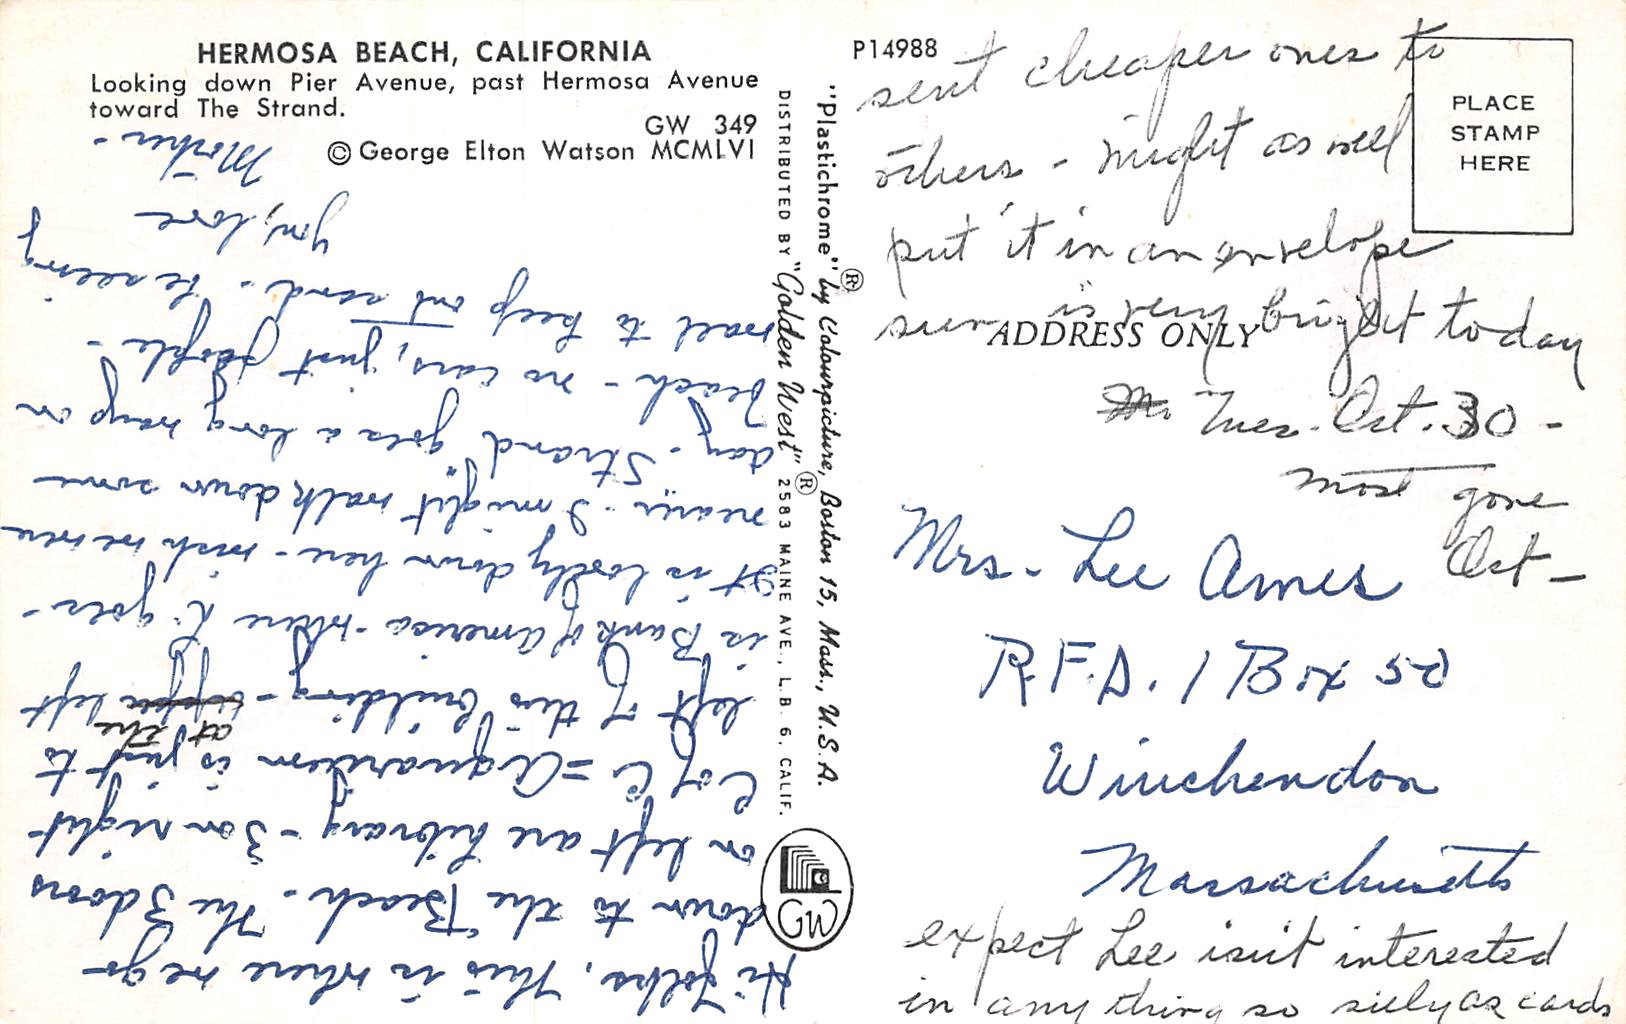 HERMOSA BEACH, CALIFORNIA
Looking down Pier Avenue, past Hermosa Avenue
toward The Strand.
GW 349
© George Elton Watson MCMLVI
Hi Folks, This is where we go
down to the "Beach - The 3 doors
on left are Library - 3 on right
C of C = Aquardium is just to
at the
left of this building - upper left
is Bank of America - where K. goes -
It is lovely down here - wish we were
nearer - I might walk down some
day - Strand" goes a long ways on
beach - no cars, just people -
wall to keep out sand. - Be seeing
you, love
Mother -
DISTRIBUTED BY "Golden West" ® 2583 MAINE AVE., L.B. 6, CALIF.
"Plastichrome" ® by Colourpicture, Boston 15, Mass., U.S.A.
GW
P14988
PLACE
STAMP
HERE
sent cheaper ones to
others - might as well
put it in an envelope
sun is very bright today
ADDRESS ONLY
Mr. Tues. Oct. 30 -
most gone
Oct -
Mrs. Lee Ames
R.F.D. 1 Box 50
Winchendon
Massachusetts
expect Lee isn't interested
in any thing so silly as cards